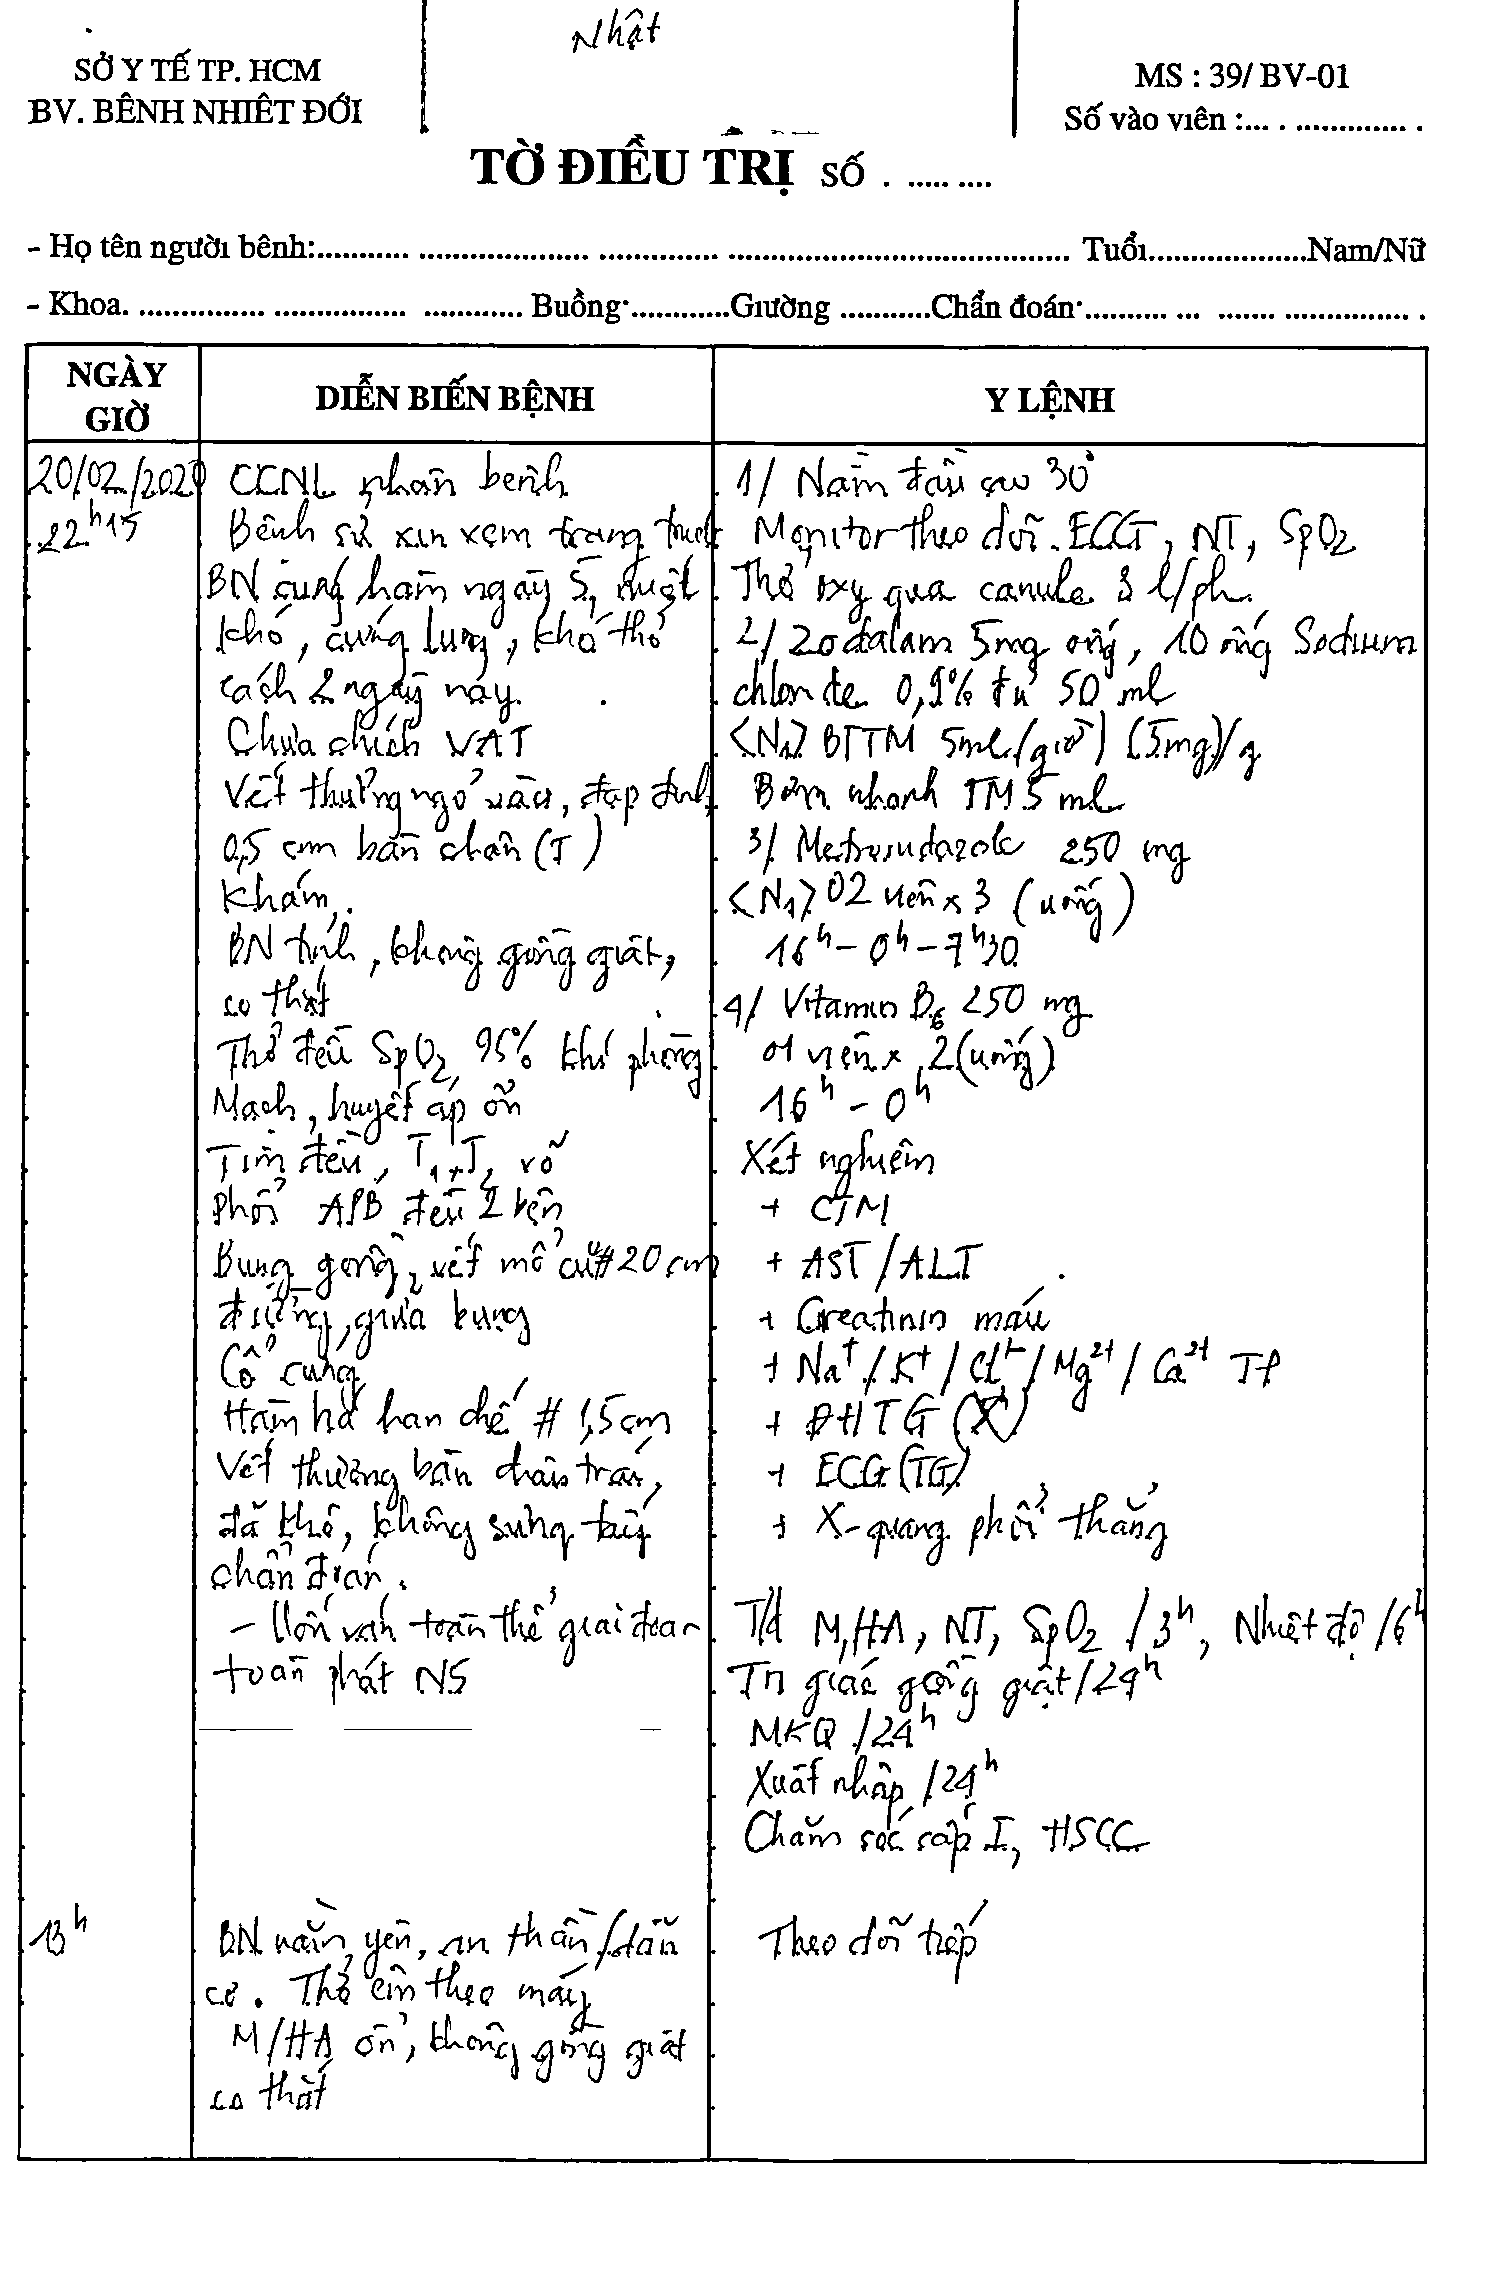 Nhật
SỞ Y TẾ TP. HCM
BV. BỆNH NHIỆT ĐỚI
MS : 39/ BV-01
Số vào viện :... . .............. .
TỜ ĐIỀU TRỊ SỐ . ..... ....
- Họ tên người bệnh:........... .................... .............. ......................................... Tuổi...................Nam/Nữ
- Khoa. ............... ................ ............ Buồng:............Giường ...........Chẩn đoán:.......... ... ....... ............... .
NGÀY GIỜ
DIỄN BIẾN BỆNH
Y LỆNH
20/02/202
22h15
CCNL nhận bệnh
Bệnh sử xin xem trang trước
BN cứng hàm ngày 5, nuốt
khó, cứng lưng, khó thở
cách 2 ngày nay.
Chưa chích VAT
Vết thương ngõ vào, đạp đinh
0,5 cm bàn chân (T)
Khám:
BN tỉnh, không gồng giật,
co thắt
Thở đều SpO2 95% khí phòng
Mạch, huyết áp ổn
Tim đều, T1, T2 rõ
Phổi APB đều 2 bên
Bụng gồng, vết mổ cũ # 20 cm
đường giữa bụng
Cổ cứng
Hàm há hạn chế # 1,5 cm
Vết thương bàn chân trái,
đã khô, không sưng tấy
chẩn đoán:
- Uốn ván toàn thể giai đoạn
toàn phát N5
1/ Nằm đầu cao 30°
Monitor theo dõi ECG, NT, SpO2
Thở oxy qua canule 3 l/ph
2/ Zodalam 5mg ống, 10 ống Sodium
chloride 0,9% đủ 50 ml
<N1> BTTM 5ml/giờ (5mg)/g
Bơm nhanh TM 5 ml
3/ Metronidazole 250 mg
<N1> 02 viên x 3 (uống)
16h - 0h - 7h30
4/ Vitamin B6 250 mg
01 viên x 2 (uống)
16h - 0h
Xét nghiệm
+ CTM
+ AST / ALT
+ Creatinin máu
+ Na+ / K+ / Cl- / Mg2+ / Ca2+ TP
+ ĐHTG (X)
+ ECG (TG)
+ X-quang phổi thẳng
T/d M, HA, NT, SpO2 /3h, Nhiệt độ /6h
Tri giác gồng giật /24h
MKQ /24h
Xuất nhập /24h
Chăm sóc cấp I, HSCC
13h
BN nằm yên, an thần/dãn
cơ. Thở êm theo máy
M/HA ổn, không gồng giật
co thắt
Theo dõi tiếp